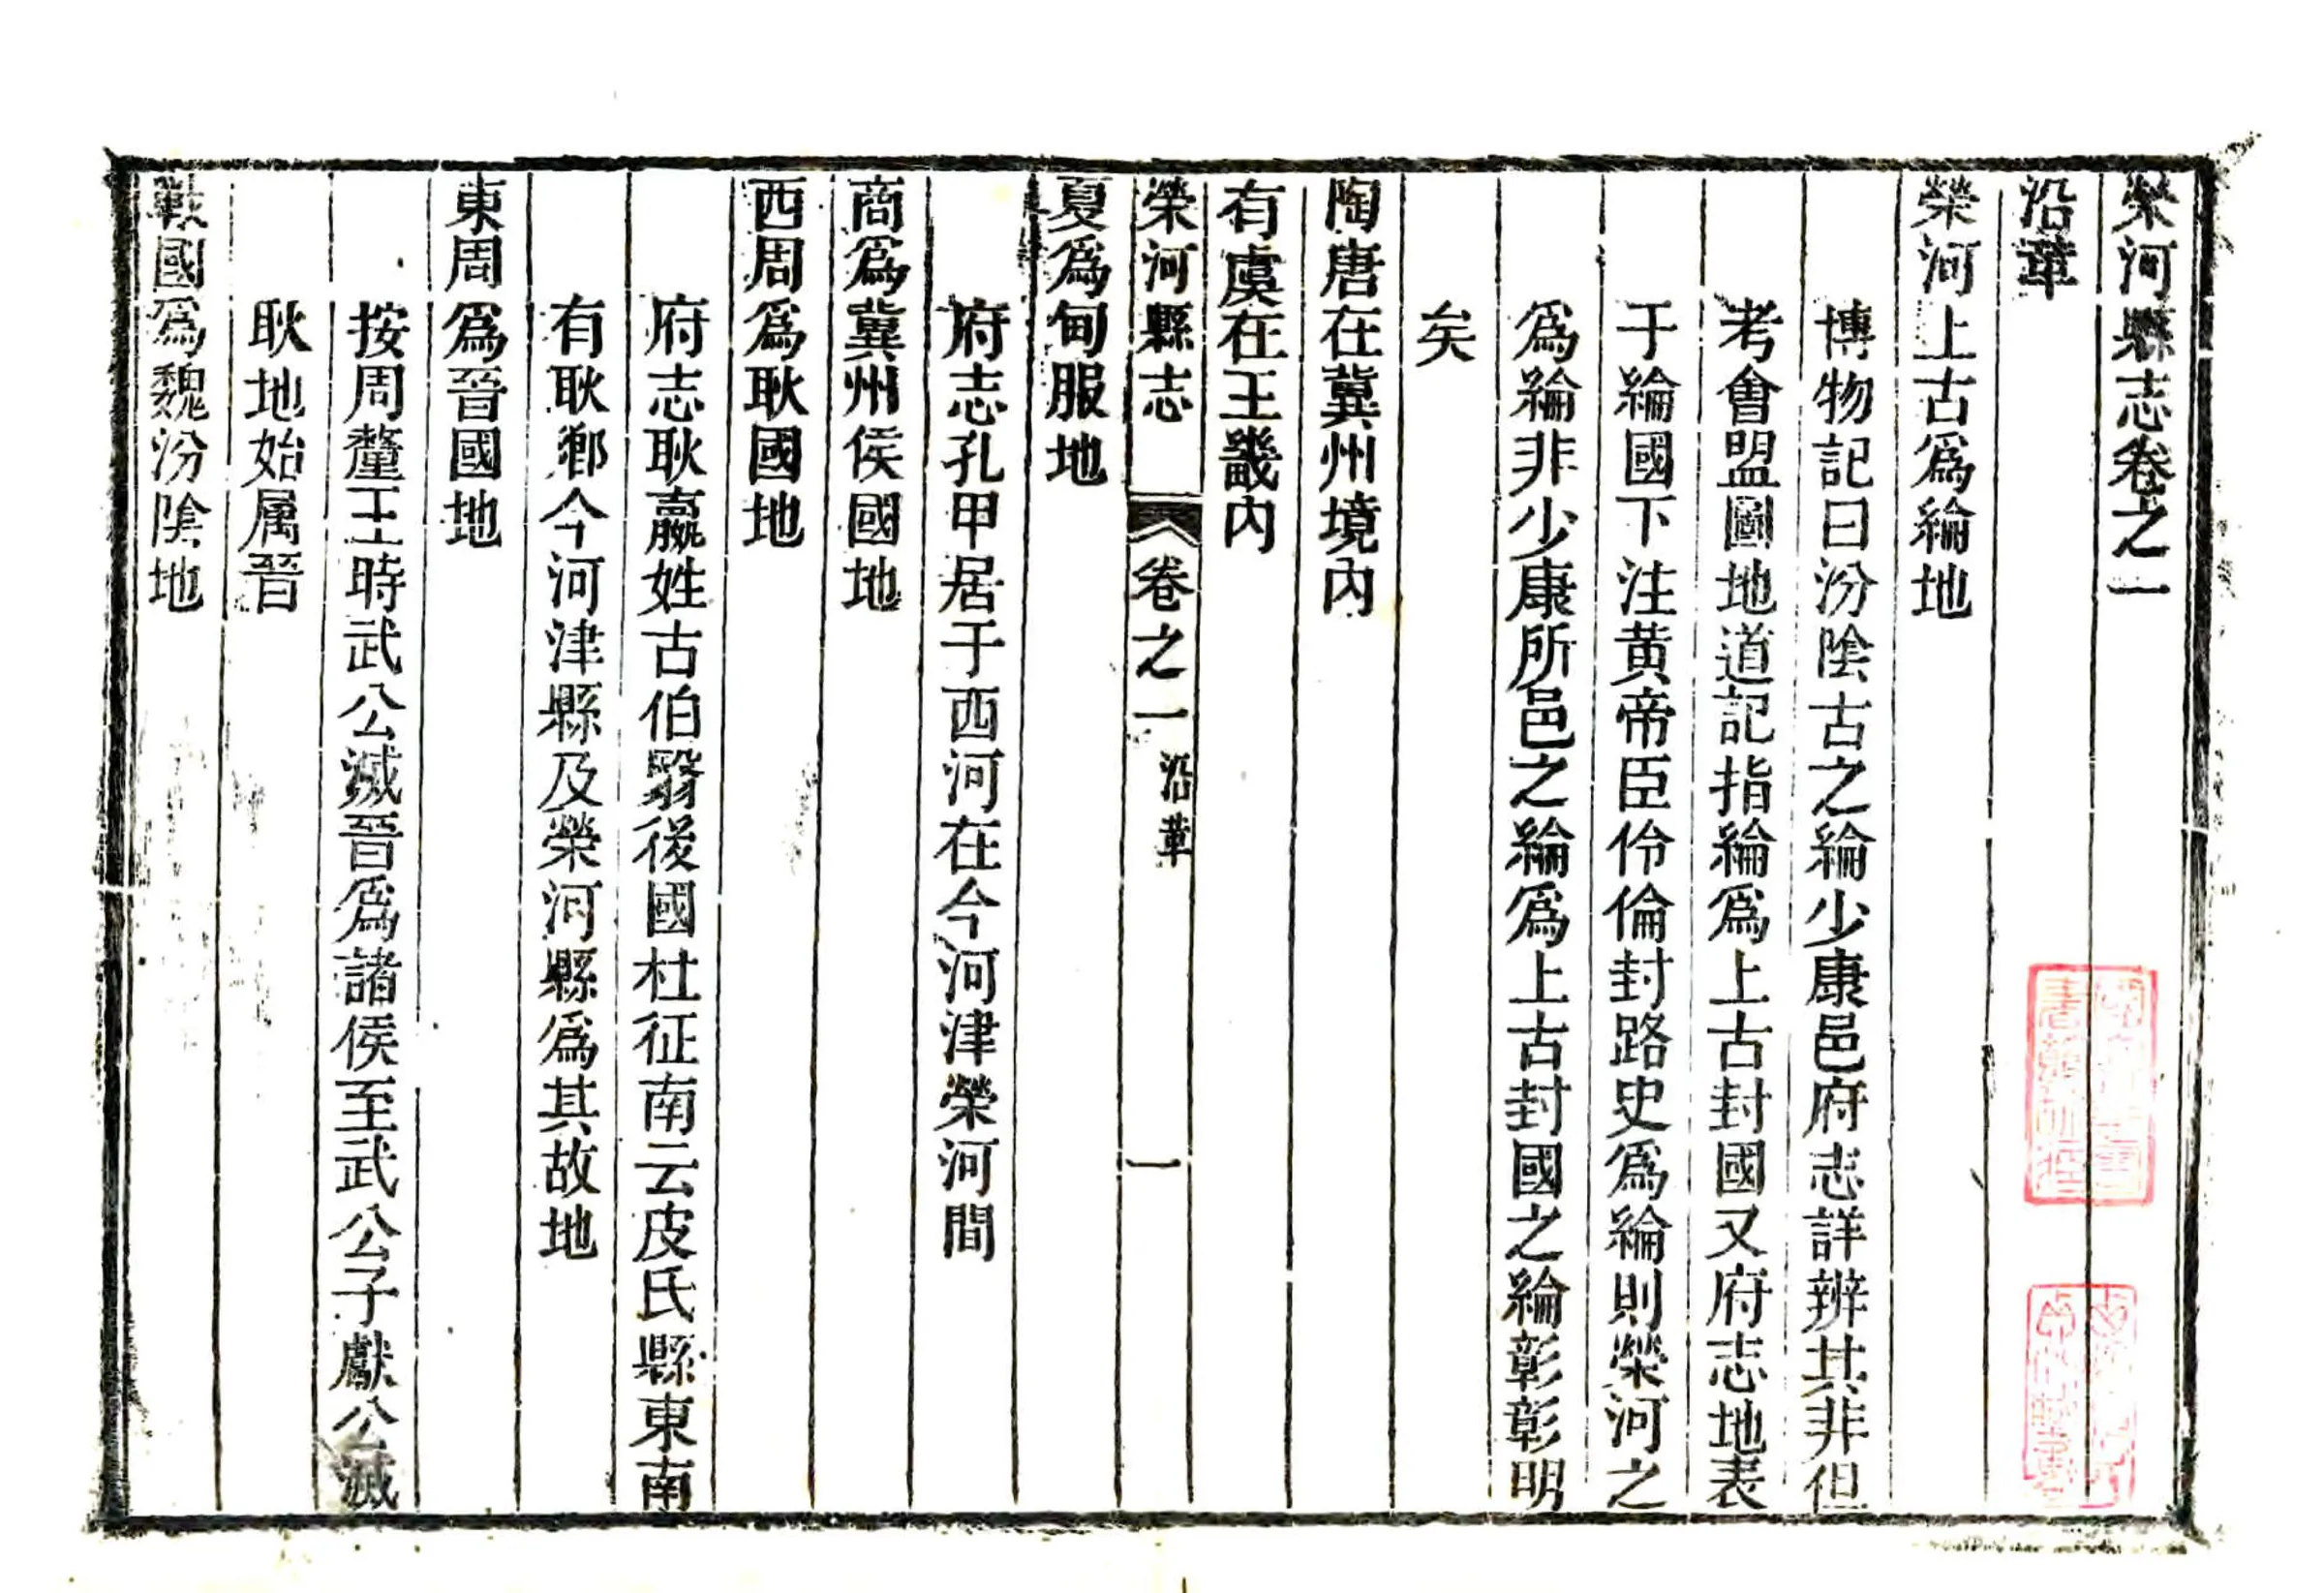 榮河縣志卷之一
沿革
榮河上古爲綸地
博物記曰汾陰古之綸少康邑府志詳辨其非但
考會盟圖地道記指綸爲上古封國又府志地表
于綸國下注黃帝臣伶倫封路史爲綸則榮河之
爲綸非少康所邑之綸爲上古封國之綸彰彰明
矣
陶唐在冀州境內
有虞在王畿內
榮河縣志 卷之一 沿革 一
夏爲甸服地
府志孔甲居于西河在今河津榮河間
商爲冀州侯國地
西周爲耿國地
府志耿嬴姓古伯翳後國杜征南云皮氏縣東南
有耿鄉今河津縣及榮河縣爲其故地
東周爲晉國地
按周釐王時武公滅晉爲諸侯至武公子獻公滅
耿地始属晉
戰國爲魏汾陰地